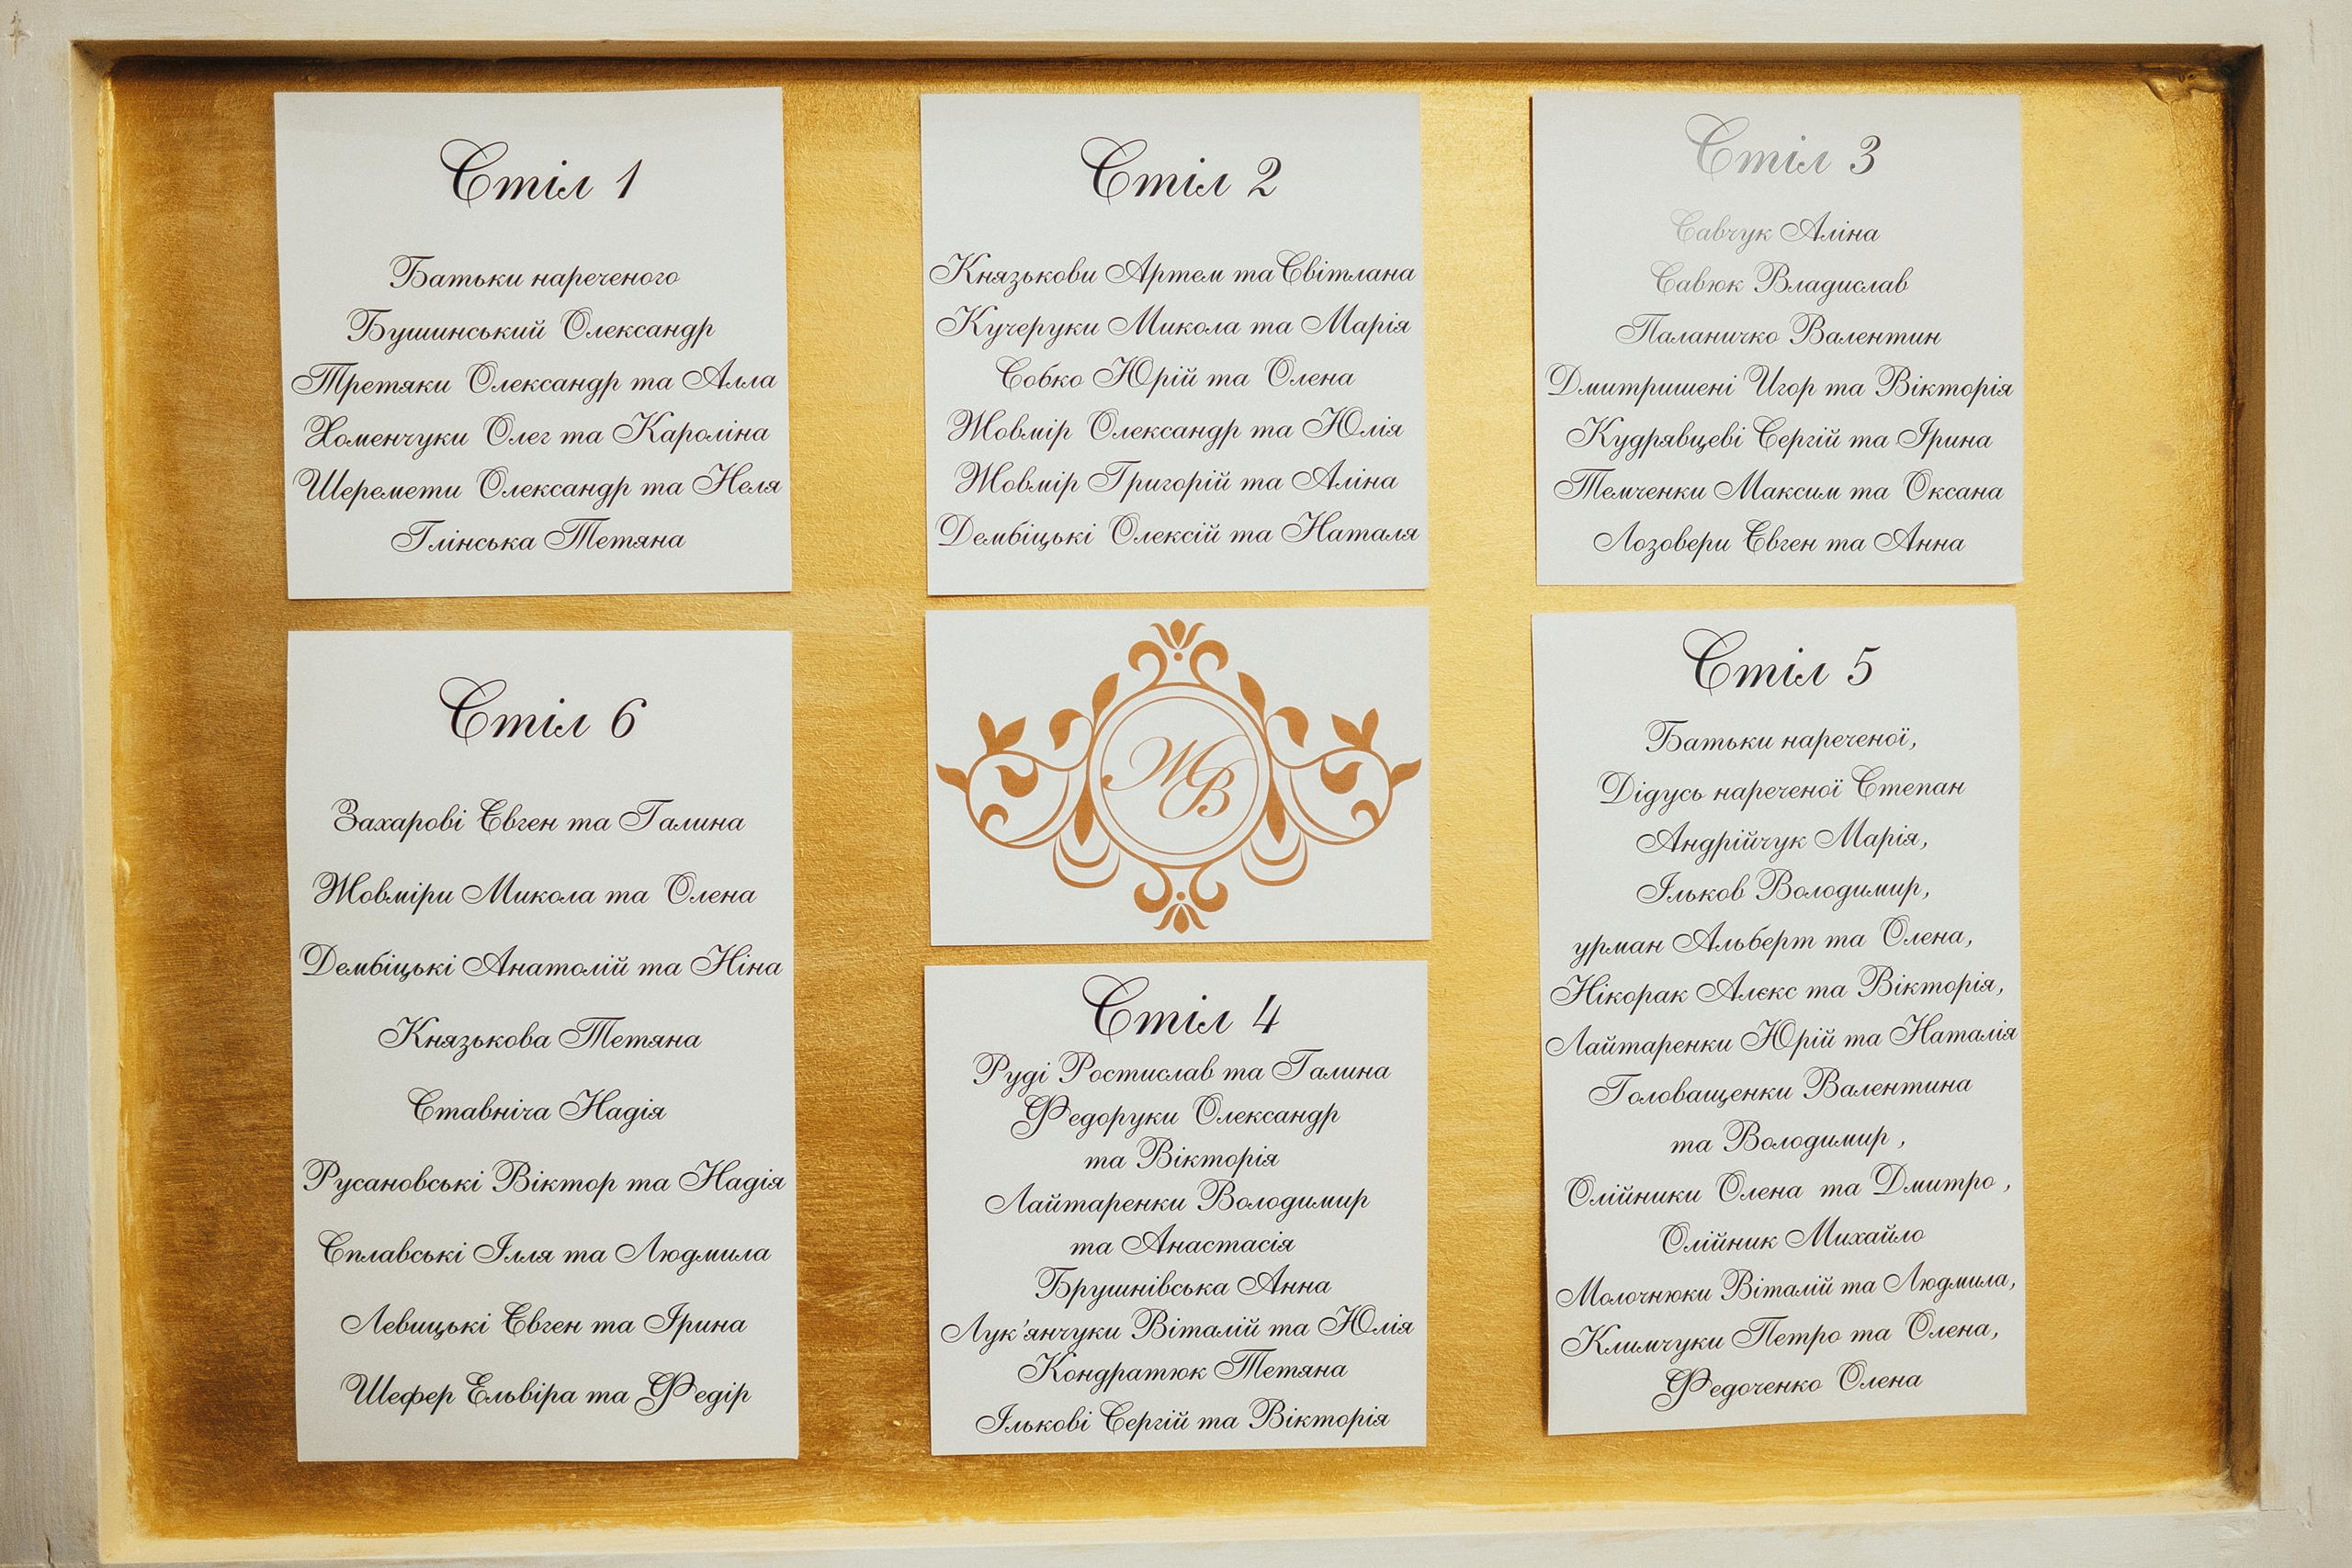 Стіл 1
Батьки нареченого
Бушинський Олександр
Третяки Олександр та Алла
Хоменчуки Олег та Кароліна
Шеремети Олександр та Неля
Глінська Тетяна
Стіл 2
Князькови Артем та Світлана
Кучеруки Микола та Марія
Собко Юрій та Олена
Жовмір Олександр та Юлія
Жовмір Григорій та Аліна
Дембіцькі Олексій та Наталя
Стіл 3
Савчук Аліна
Савюк Владислав
Паланичко Валентин
Дмитришені Игор та Вікторія
Кудрявцеві Сергій та Ірина
Темченки Максим та Оксана
Лозовери Євген та Анна
Стіл 6
Захарові Євген та Галина
Жовміри Микола та Олена
Дембіцькі Анатолій та Ніна
Князькова Тетяна
Ставніча Надія
Русановські Віктор та Надія
Сплавські Ілля та Людмила
Левицькі Євген та Ірина
Шефер Ельвіра та Федір
Стіл 4
Руді Ростислав та Галина
Федоруки Олександр
та Вікторія
Лайтаренки Володимир
та Анастасія
Брушнівська Анна
Лук'янчуки Віталій та Юлія
Кондратюк Тетяна
Ількові Сергій та Вікторія
Стіл 5
Батьки нареченої,
Дідусь нареченої Степан
Андрійчук Марія,
Ільков Володимир,
урман Альберт та Олена,
Нікорак Алєкс та Вікторія,
Лайтаренки Юрій та Наталія
Головащенки Валентина
та Володимир ,
Олійники Олена та Дмитро ,
Олійник Михайло
Молочнюки Віталій та Людмила,
Климчуки Петро та Олена,
Федоченко Олена